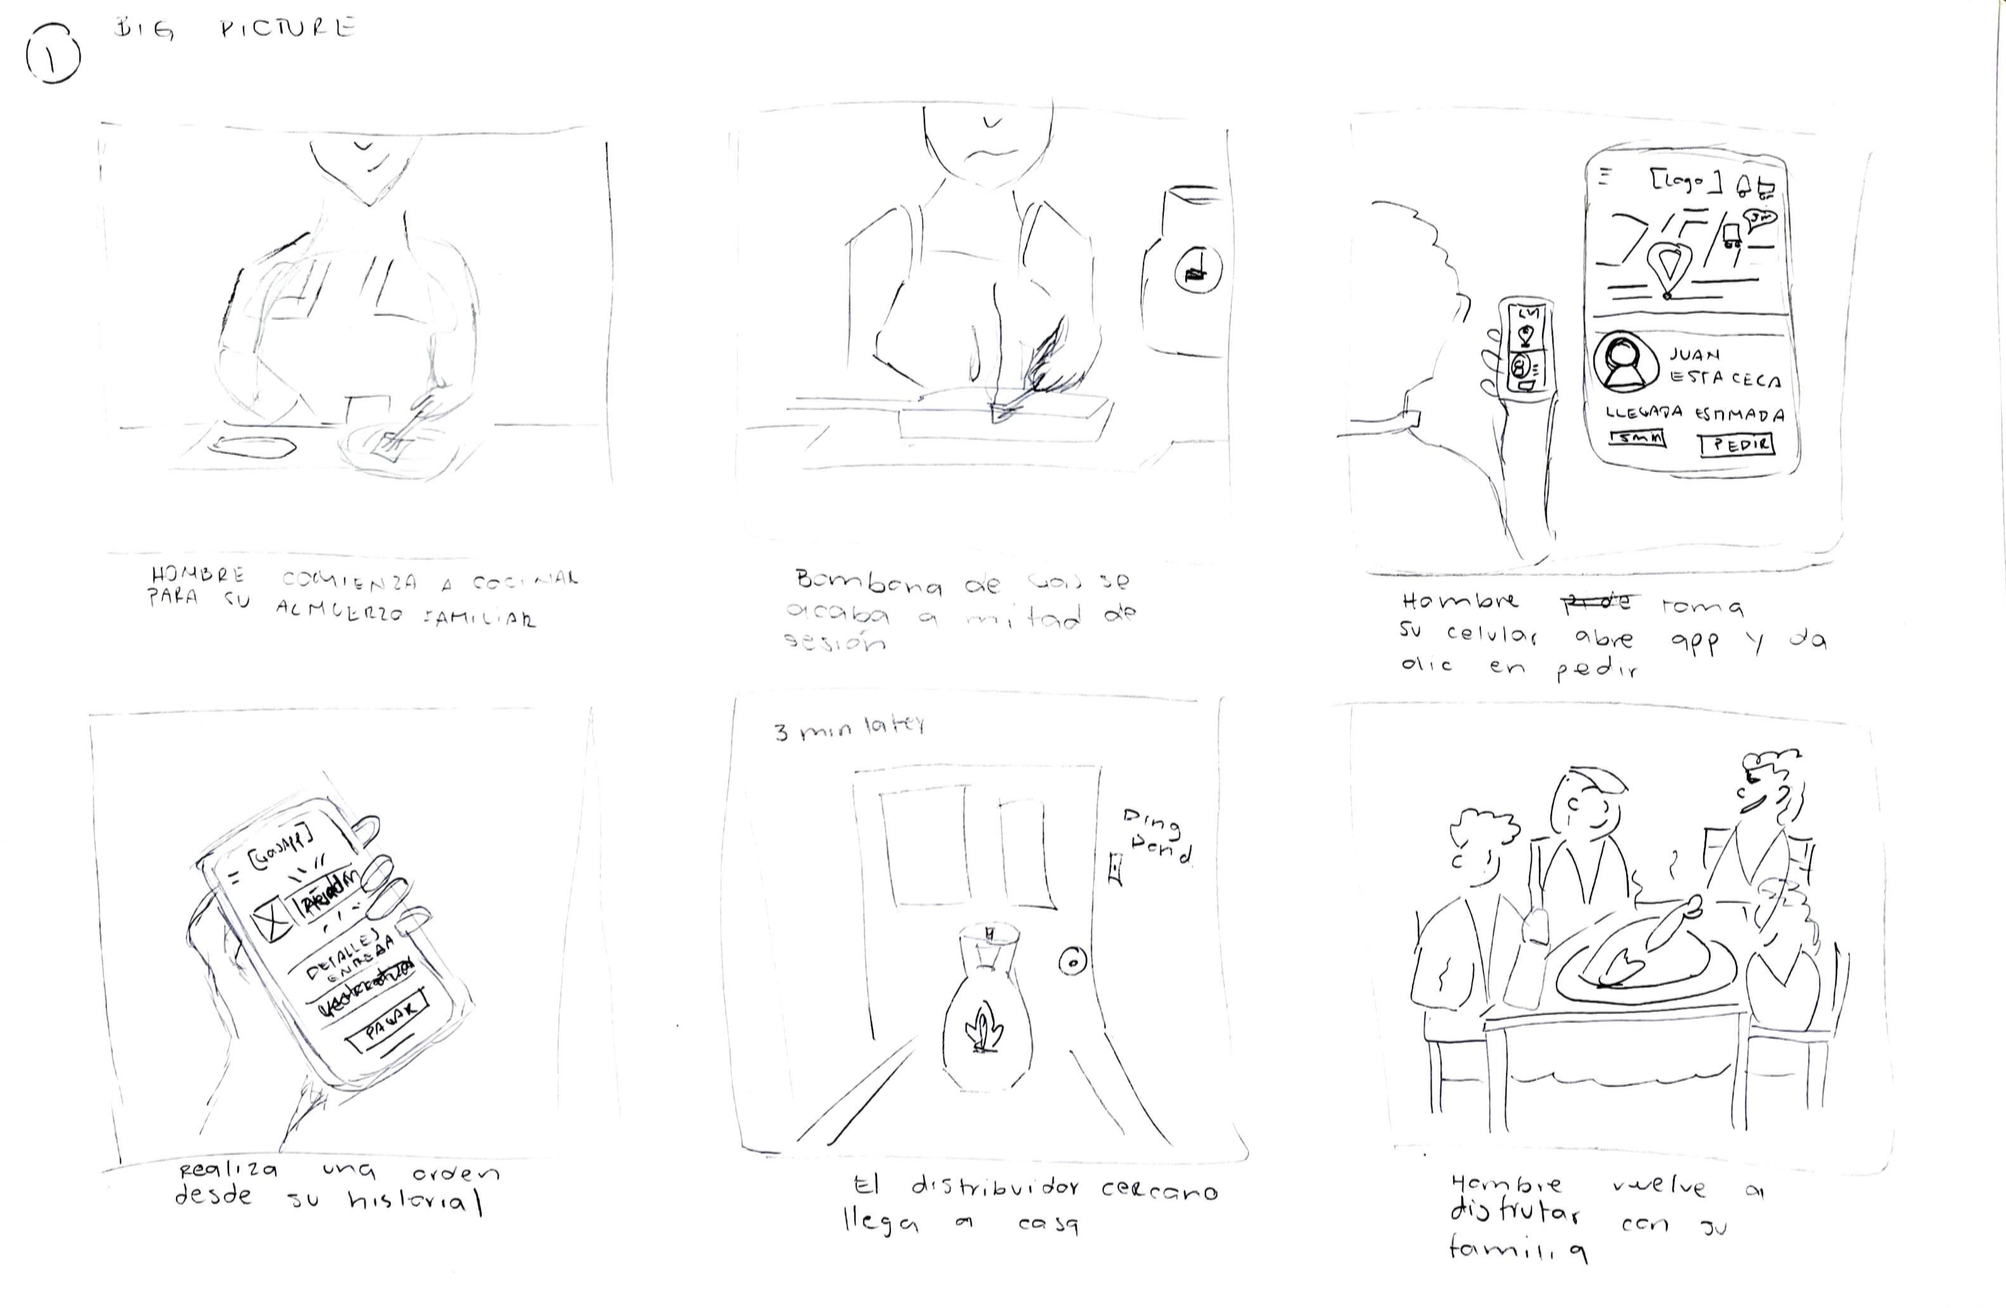 1
BIG PICTURE
HOMBRE COMIENZA A COCINAR
PARA SU ALMUERZO FAMILIAR
Bombona de Gas se
acaba a mitad de
sesión
[Logo]
3m
JUAN
ESTA CECA
LLEGADA ESTIMADA
5min
PEDIR
Hombre pide toma
su celular abre app y da
clic en pedir
[GasApp]
DETALLES
ENTREGA
PAGAR
Realiza una orden
desde su historial
3 min later
Ding
Dond
El distribuidor cercano
llega a casa
Hombre vuelve a
disfrutar con su
familia